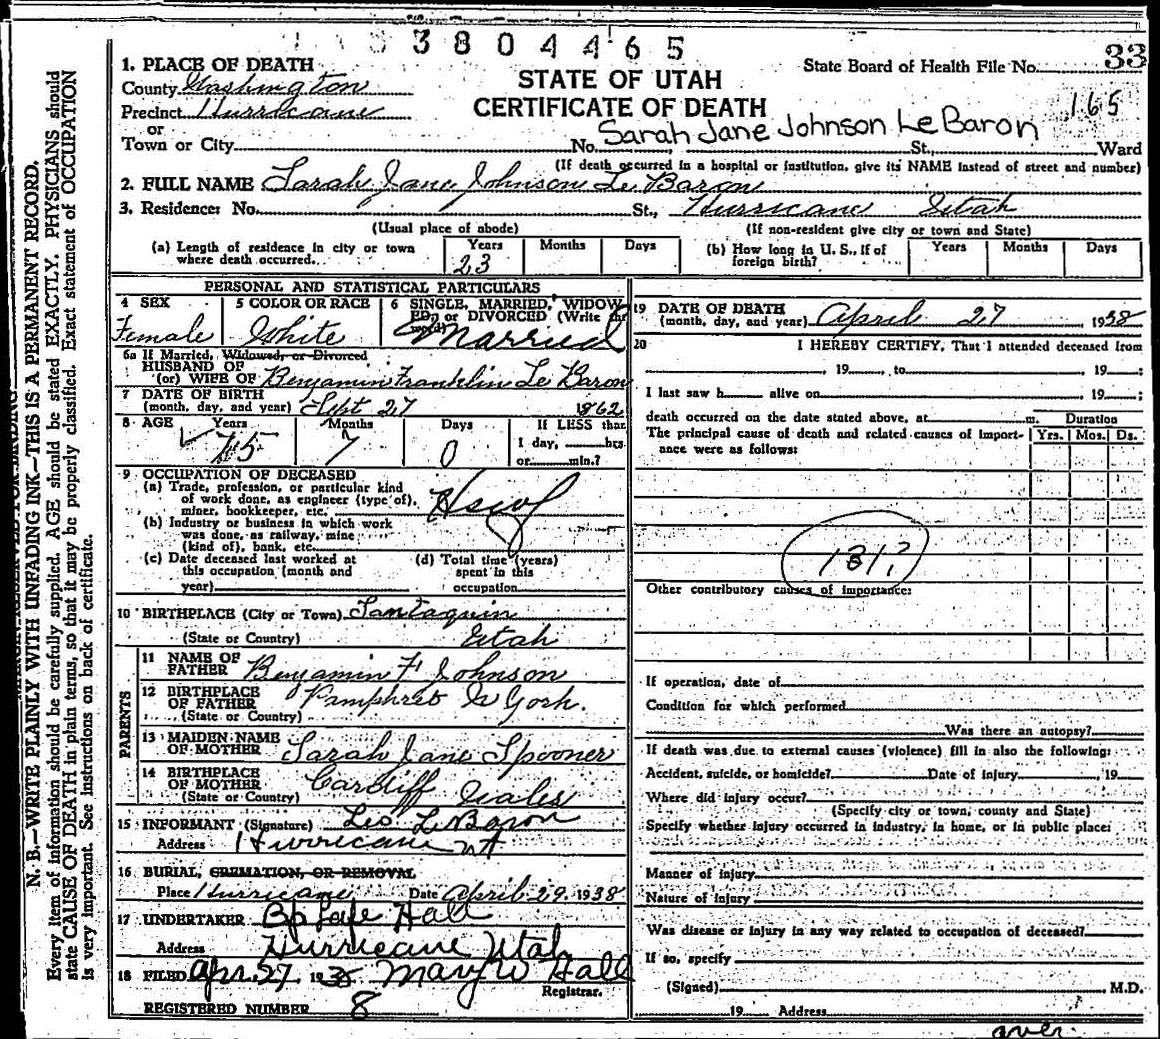 3804465
33
1. PLACE OF DEATH
STATE OF UTAH
State Board of Health File No.
County Washington
CERTIFICATE OF DEATH
165
Precinct Hurricane
or
Town or City
No. Sarah Jane Johnson LeBaron St., Ward
(If death occurred in a hospital or institution, give its NAME instead of street and number)
2. FULL NAME Sarah Jane Johnson Le Baron
3. Residence: No. St., Hurricane Utah
(Usual place of abode) (If non-resident give city or town and State)
(a) Length of residence in city or town where death occurred. Years 23 Months Days
(b) How long in U. S., if of foreign birth? Years Months Days
PERSONAL AND STATISTICAL PARTICULARS
4 SEX Female
5 COLOR OR RACE White
6 SINGLE, MARRIED, WIDOWED, or DIVORCED (Write the word) Married
6a If Married, Widowed, or Divorced
HUSBAND OF
(or) WIFE OF Benjamin Franklin Le Baron
7 DATE OF BIRTH
(month, day, and year) Sept 27 1862
8 AGE Years 75 Months 7 Days 0 If LESS than
1 day, hrs.
or min.?
9 OCCUPATION OF DECEASED
(a) Trade, profession, or particular kind
of work done, as engineer (type of),
miner, bookkeeper, etc. Hswf
(b) Industry or business in which work
was done, as railway, mine
(kind of), bank, etc.
(c) Date deceased last worked at
this occupation (month and
year)
(d) Total time (years)
spent in this
occupation
10 BIRTHPLACE (City or Town) Santaquin
(State or Country) Utah
PARENTS
11 NAME OF
FATHER Benjamin F Johnson
12 BIRTHPLACE
OF FATHER Pamphret N York.
(State or Country)
13 MAIDEN NAME
OF MOTHER Sarah Jane Spooner
14 BIRTHPLACE
OF MOTHER Cardiff Wales
(State or Country)
15 INFORMANT (Signature) Leo LeBaron
Address Hurricane Ut
16 BURIAL, CREMATION, OR REMOVAL
Place Hurricane Date April 29, 1938
17 UNDERTAKER Bp Lafe Hall
Address Hurricane Utah
18 FILED Apr. 27 1938 Mary W Hall
Registrar.
REGISTERED NUMBER 8
19 DATE OF DEATH
(month, day, and year) April 27, 1938
20 I HEREBY CERTIFY, That I attended deceased from
, 19 , to , 19 ;
I last saw h alive on , 19 ;
death occurred on the date stated above, at m. Duration
The principal cause of death and related causes of importance were as follows: Yrs. Mos. Ds.
131?
Other contributory causes of importance:
If operation, date of
Condition for which performed
Was there an autopsy?
If death was due to external causes (violence) fill in also the following:
Accident, suicide, or homicide? Date of injury , 19
Where did injury occur?
(Specify city or town, county and State)
Specify whether injury occurred in industry, in home, or in public place:
Manner of injury
Nature of injury
Was disease or injury in any way related to occupation of deceased?
If so, specify
(Signed) M.D.
19 Address
over
N. B.—WRITE PLAINLY WITH UNFADING INK—THIS IS A PERMANENT RECORD.
Every item of information should be carefully supplied. AGE should be stated EXACTLY. PHYSICIANS should
state CAUSE OF DEATH in plain terms, so that it may be properly classified. Exact statement of OCCUPATION
is very important. See instructions on back of certificate.